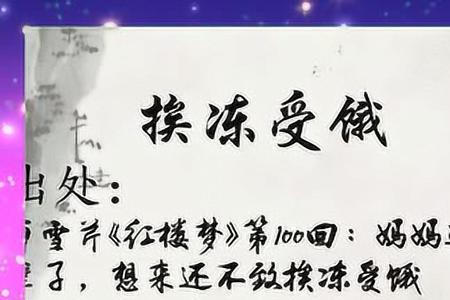 挨冻受饿
出处：
雪芹《红楼梦》第100回：妈妈
子，想来还不致挨冻受饿